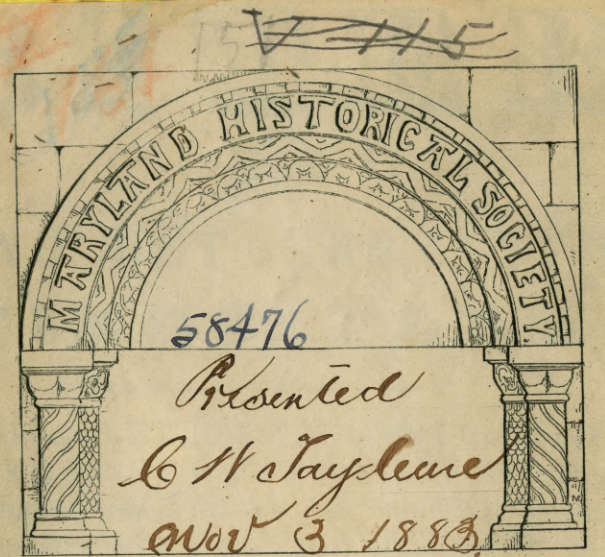 V 115
151
MARYLAND HISTORICAL SOCIETY.
58476
Presented
C W Tayleure
Nov 3 1883